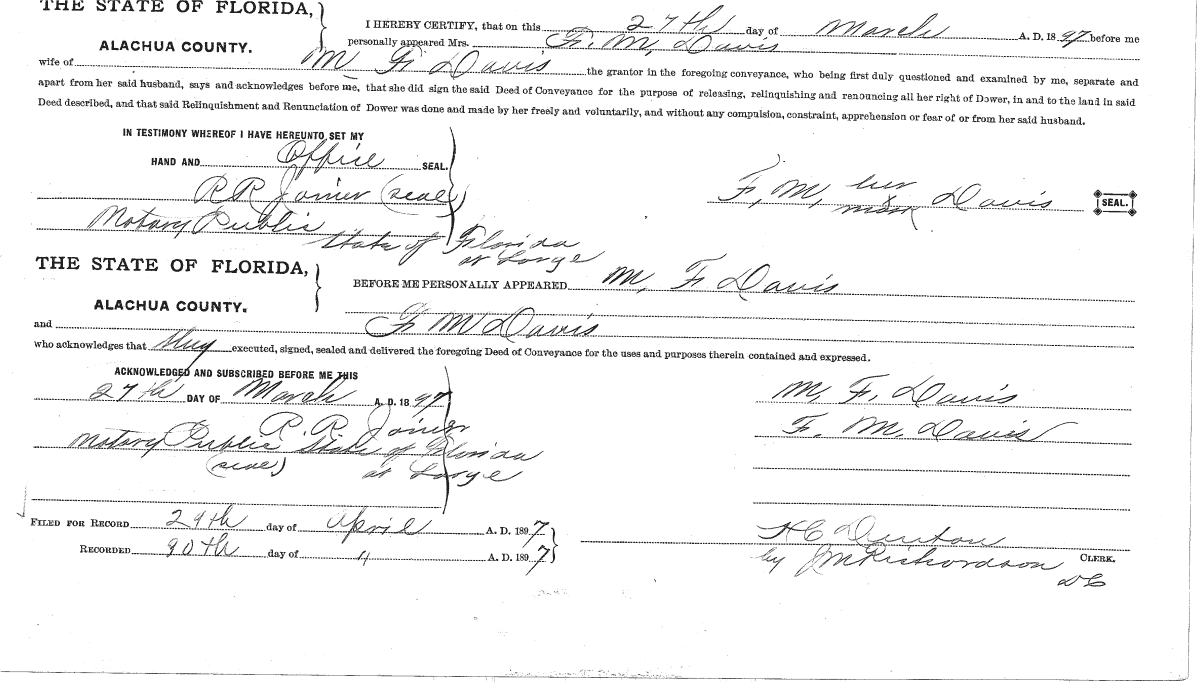 THE STATE OF FLORIDA,
ALACHUA COUNTY.
I HEREBY CERTIFY, that on this 27th day of March A. D. 1897 before me
personally appeared Mrs. F. M. Davis
wife of M F. Davis the grantor in the foregoing conveyance, who being first duly questioned and examined by me, separate and
apart from her said husband, says and acknowledges before me, that she did sign the said Deed of Conveyance for the purpose of releasing, relinquishing and renouncing all her right of Dower, in and to the land in said
Deed described, and that said Relinquishment and Renunciation of Dower was done and made by her freely and voluntarily, and without any compulsion, constraint, apprehension or fear of or from her said husband.
IN TESTIMONY WHEREOF I HAVE HEREUNTO SET MY
HAND AND Office SEAL.
R R Joiner (seal)
F, M, her x mark Davis SEAL.
Notary Public State of Florida
at Large
THE STATE OF FLORIDA,
ALACHUA COUNTY.
BEFORE ME PERSONALLY APPEARED M, F. Davis
and F M Davis
who acknowledges that they executed, signed, sealed and delivered the foregoing Deed of Conveyance for the uses and purposes therein contained and expressed.
ACKNOWLEDGED AND SUBSCRIBED BEFORE ME THIS
27th DAY OF March A. D. 1897
M, F. Davis
R. R. Joiner
F. M. Davis
Notary Public State of Florida
(seal) at Large
FILED FOR RECORD 29th day of April A. D. 1897
RECORDED 30th day of " A. D. 1897
H C Denton CLERK.
by J M Richardson
DC